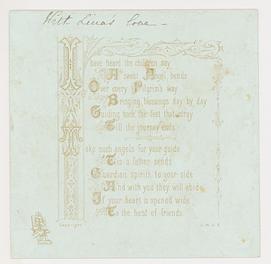 With Lina's love —
I have heard the children say
A sweet Angel bends
Over every Pilgrim's way
Bringing blessings day by day
Guiding back the feet that stray
Till the journey ends
Take such angels for your guide
This a father sends
Guardian spirit to your side
And with you they will abide
If your heart is opened wide
To the best of friends.
Copyright